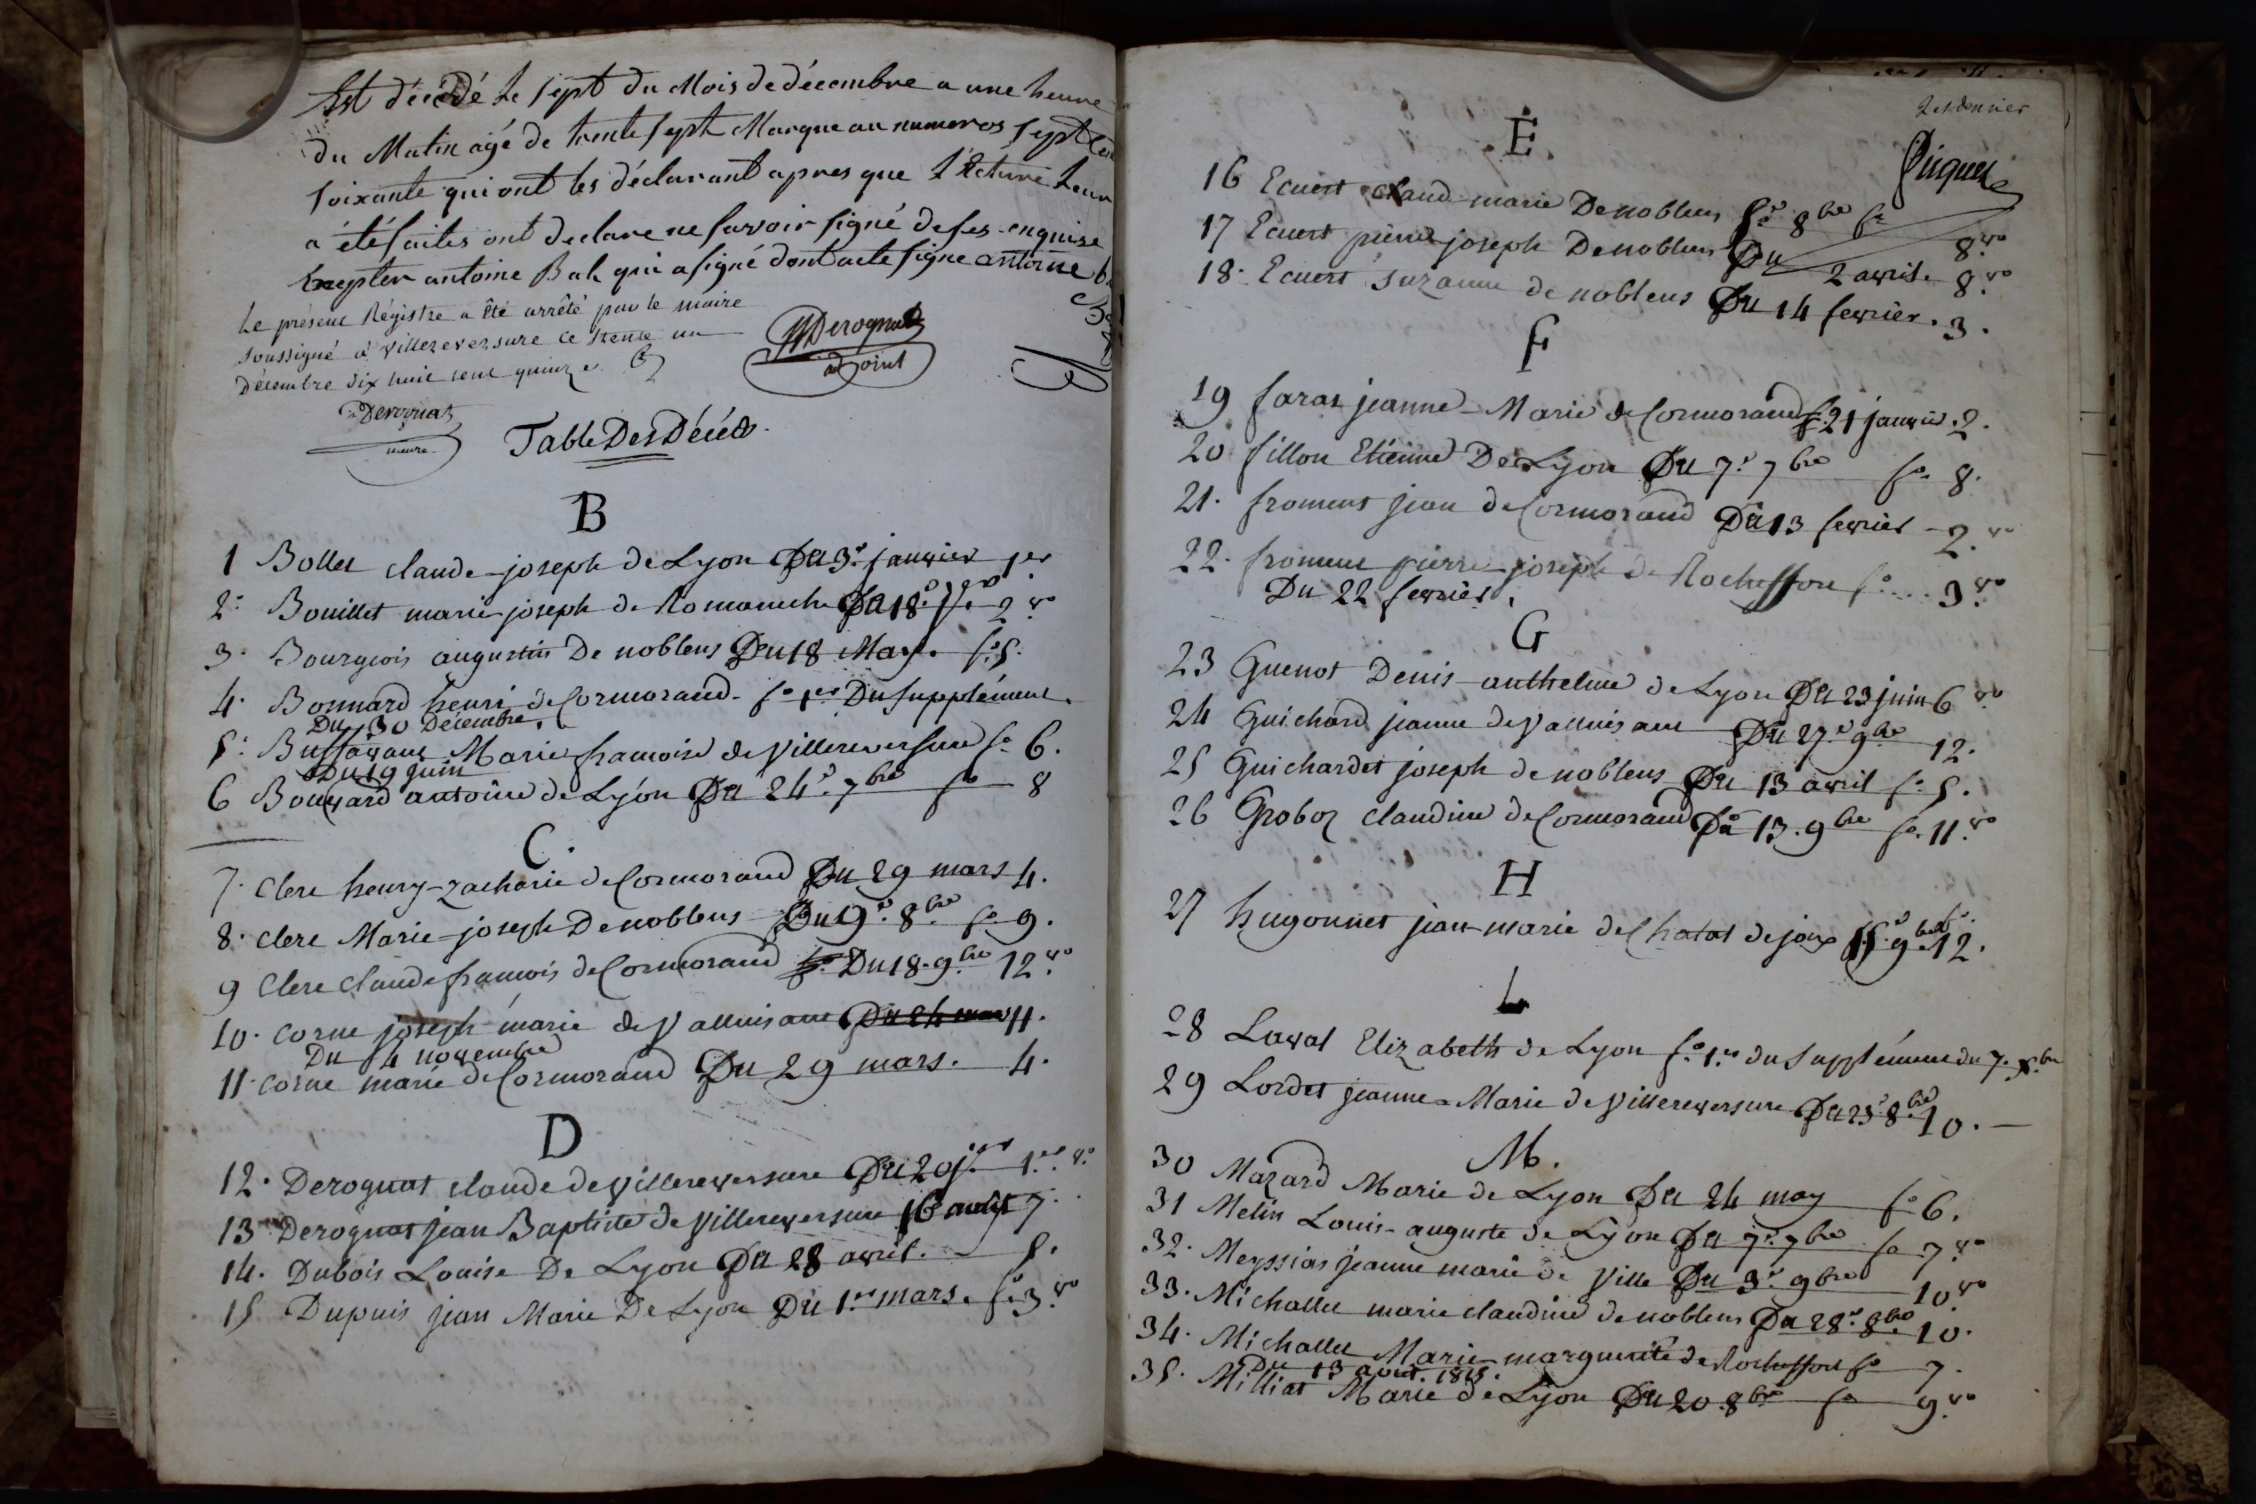 Est décédé le sept du Mois de décembre a une heure
du Matin agé de trente sept Marque au numeros sept
soixante qui ont les déclarant apres que lecture leur
a été faites ont declare ne savoir signé de ses enquise
Excepter antoine Bah qui a signé dont acte signe antoine
Le présent Régistre a été arrêté par le maire
soussigné a villereversure ce trente un
Décembre dix huit cent quinze
Derognat
adjoint
Derognat
maire
Table Des Décés.
B
1 Bollet claude-joseph de Lyon Du 3e janvier 1er
2. Bouillet marie joseph de Romaneche Du 18e 2 vo
3. Bourgeois augustin De noblens Du 18 May. fo 5.
4. Bonnard henri de Cormorand. fo 1er Du Supplément.
Du 30 Décembre.
5. Marie francoise de Villereversure fo 6.
Du 19 juin
6 Bouvard antoine de Lyon Du 24e 7bre fo 8
C.
7. Clere henry-zacharie de Cormorand Du 29 mars 4.
8. Clere Marie-joseph De noblens Du 9e 8bre fo 9.
9 Clere Claude francois de Cormorand Du 18. 9bre 12 vo
10. Corne joseph marie de Valluisant Du 24 mars 11.
Du 14 novembre
11 Corne marie de Cormorand Du 29 mars. 4.
D
12. Derognat claude de Villereversure Du 20 jer 1er vo
13 Derognat jean Baptiste de Villereversure 16 août 7.
14. Dubois Louise De Lyon Du 28 avril. 5.
15 Dupuis jean Marie De Lyon Du 1er mars. fo 3 vo
2e et dernier
Piquet
E
16 Ecuert claud-marie De noblens 5e 8bre fo 8 vo
17 Ecuert pierre joseph De noblens Du 2 avril. 8 vo
18. Ecuert suzanne de noblens Du 14 fevrier. 3.
F
19 faras jeanne-Marie de Cormorand 21 janvier. 2.
20 fillon Etienne De Lyon Du 7e 7bre fo 8.
21. froment jean de Cormorand Du 13 fevrier 2. vo
22. froment pierre joseph de Rocheffort fo ... 3 vo
Du 22 fevrier.
G
23 Guenot Denis-anthelme de Lyon Du 23 juin 6 vo
24 Guichard jeanne de Valluisant Du 27e 9bre 12.
25 Guichardet joseph de noblens Du 13 avril fo 5.
26 Groboz claudine de Cormorand Du 13. 9bre fo 11 vo
H
27 hugonnet jean-marie de Chatat de joux 15e 9bre 12.
L
28 Laval Elizabeth de Lyon fo 1er du Supplément du 7. Xbre
29 Lordet jeanne-Marie de Villereversure Du 25e 8bre 10.
M.
30 Mazard Marie de Lyon Du 24 may fo 6.
31 Melin Louis-auguste de Lyon Du 7e 7bre fo 7 vo
32. Meyssias jeanne marie de Ville Du 3e 9bre 10 vo
33. Michallet marie claudine de noblens Du 28e 8bre 10.
34. Michallet Marie-marguerite de Rocheffort fo 7.
Du 13 aout. 1815.
35. Milliat Marie de Lyon Du 20. 8bre fo 9 vo